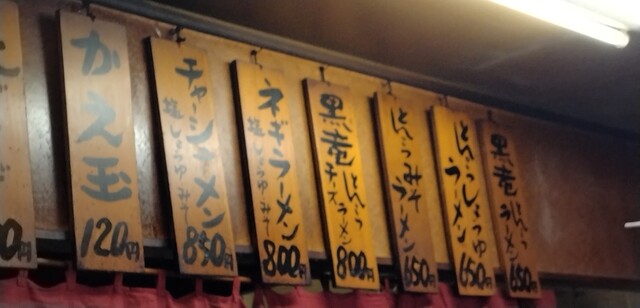 かえ玉
120円
チャーシューメン
塩しょうゆみそ
850円
ネギラーメン
塩しょうゆみそ
800円
黒竜とんこつ
チーズラーメン
800円
とんこつみそ
ラーメン
650円
とんこつしょうゆ
ラーメン
650円
黒竜
ラーメン
650円